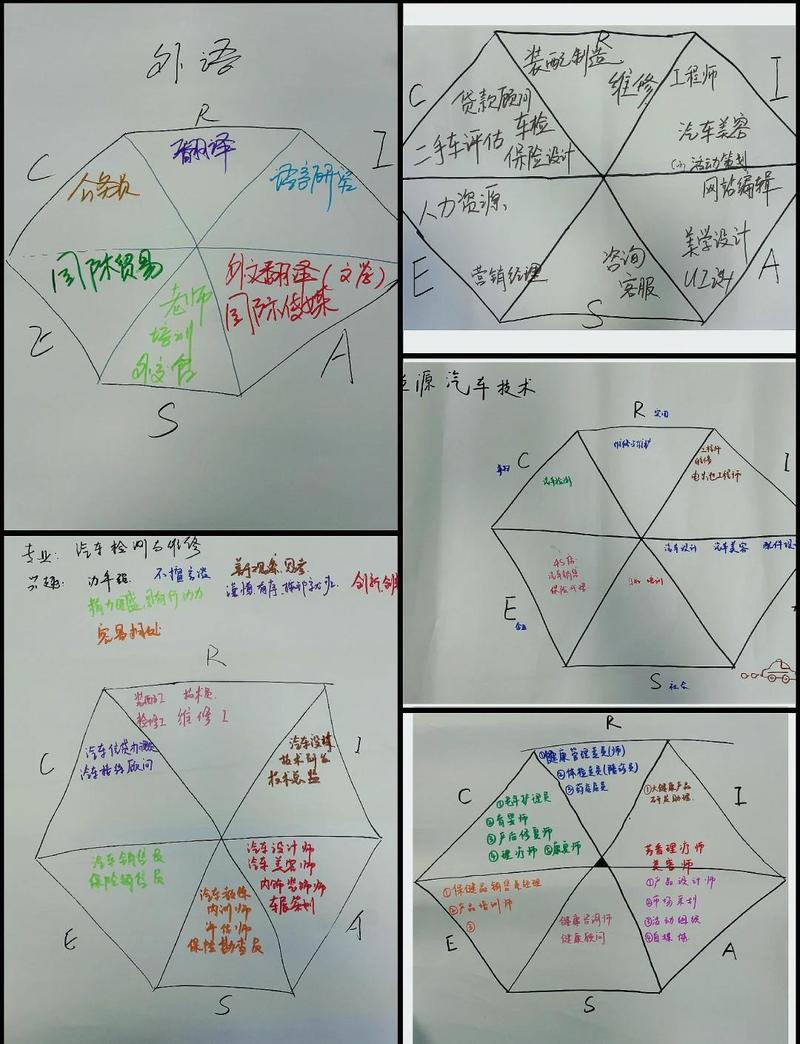 外语
R
I
C
翻译
公务员
语言研究
国际贸易
外文翻译(文学)
国际传媒
老师
培训
外交官
E
A
S
R
C
I
装配制造
维修
工程师
贷款顾问
二手车评估
车检
保险设计
汽车美容
活动策划
网站编辑
人力资源、
美学设计
营销经理
咨询
客服
E
A
S
源汽车技术
R
C
I
汽车检测
工程师
电池工程师
汽车设计
汽车美容
4S店
汽车销售
保险代理
培训
E
S 社会
专业: 汽车检测与维修
兴趣:
动手强
不擅言谈
精力旺盛,
有行动力
容易相处
R
C
I
装配工
技术员
检修工
维修工
汽车
顾问
汽车
技术研发
技术总监
汽车销售员
保险销售员
汽车设计师
汽车美容师
内饰装饰师
车展策划
汽车教练
内训师
评估师
保险勘查员
E
A
S
R
C
I
①健康管理
②体检
③药品
①老年护理员
②育婴师
③产后修复师
④理疗师
⑤康复师
①大健康产品
研发助理
芳香理疗师
美容师
①保健品销售员经理
②产品培训师
③
①产品设计师
②市场策划
③活动组织
④自媒体
健康咨询师
健康顾问
E
A
S